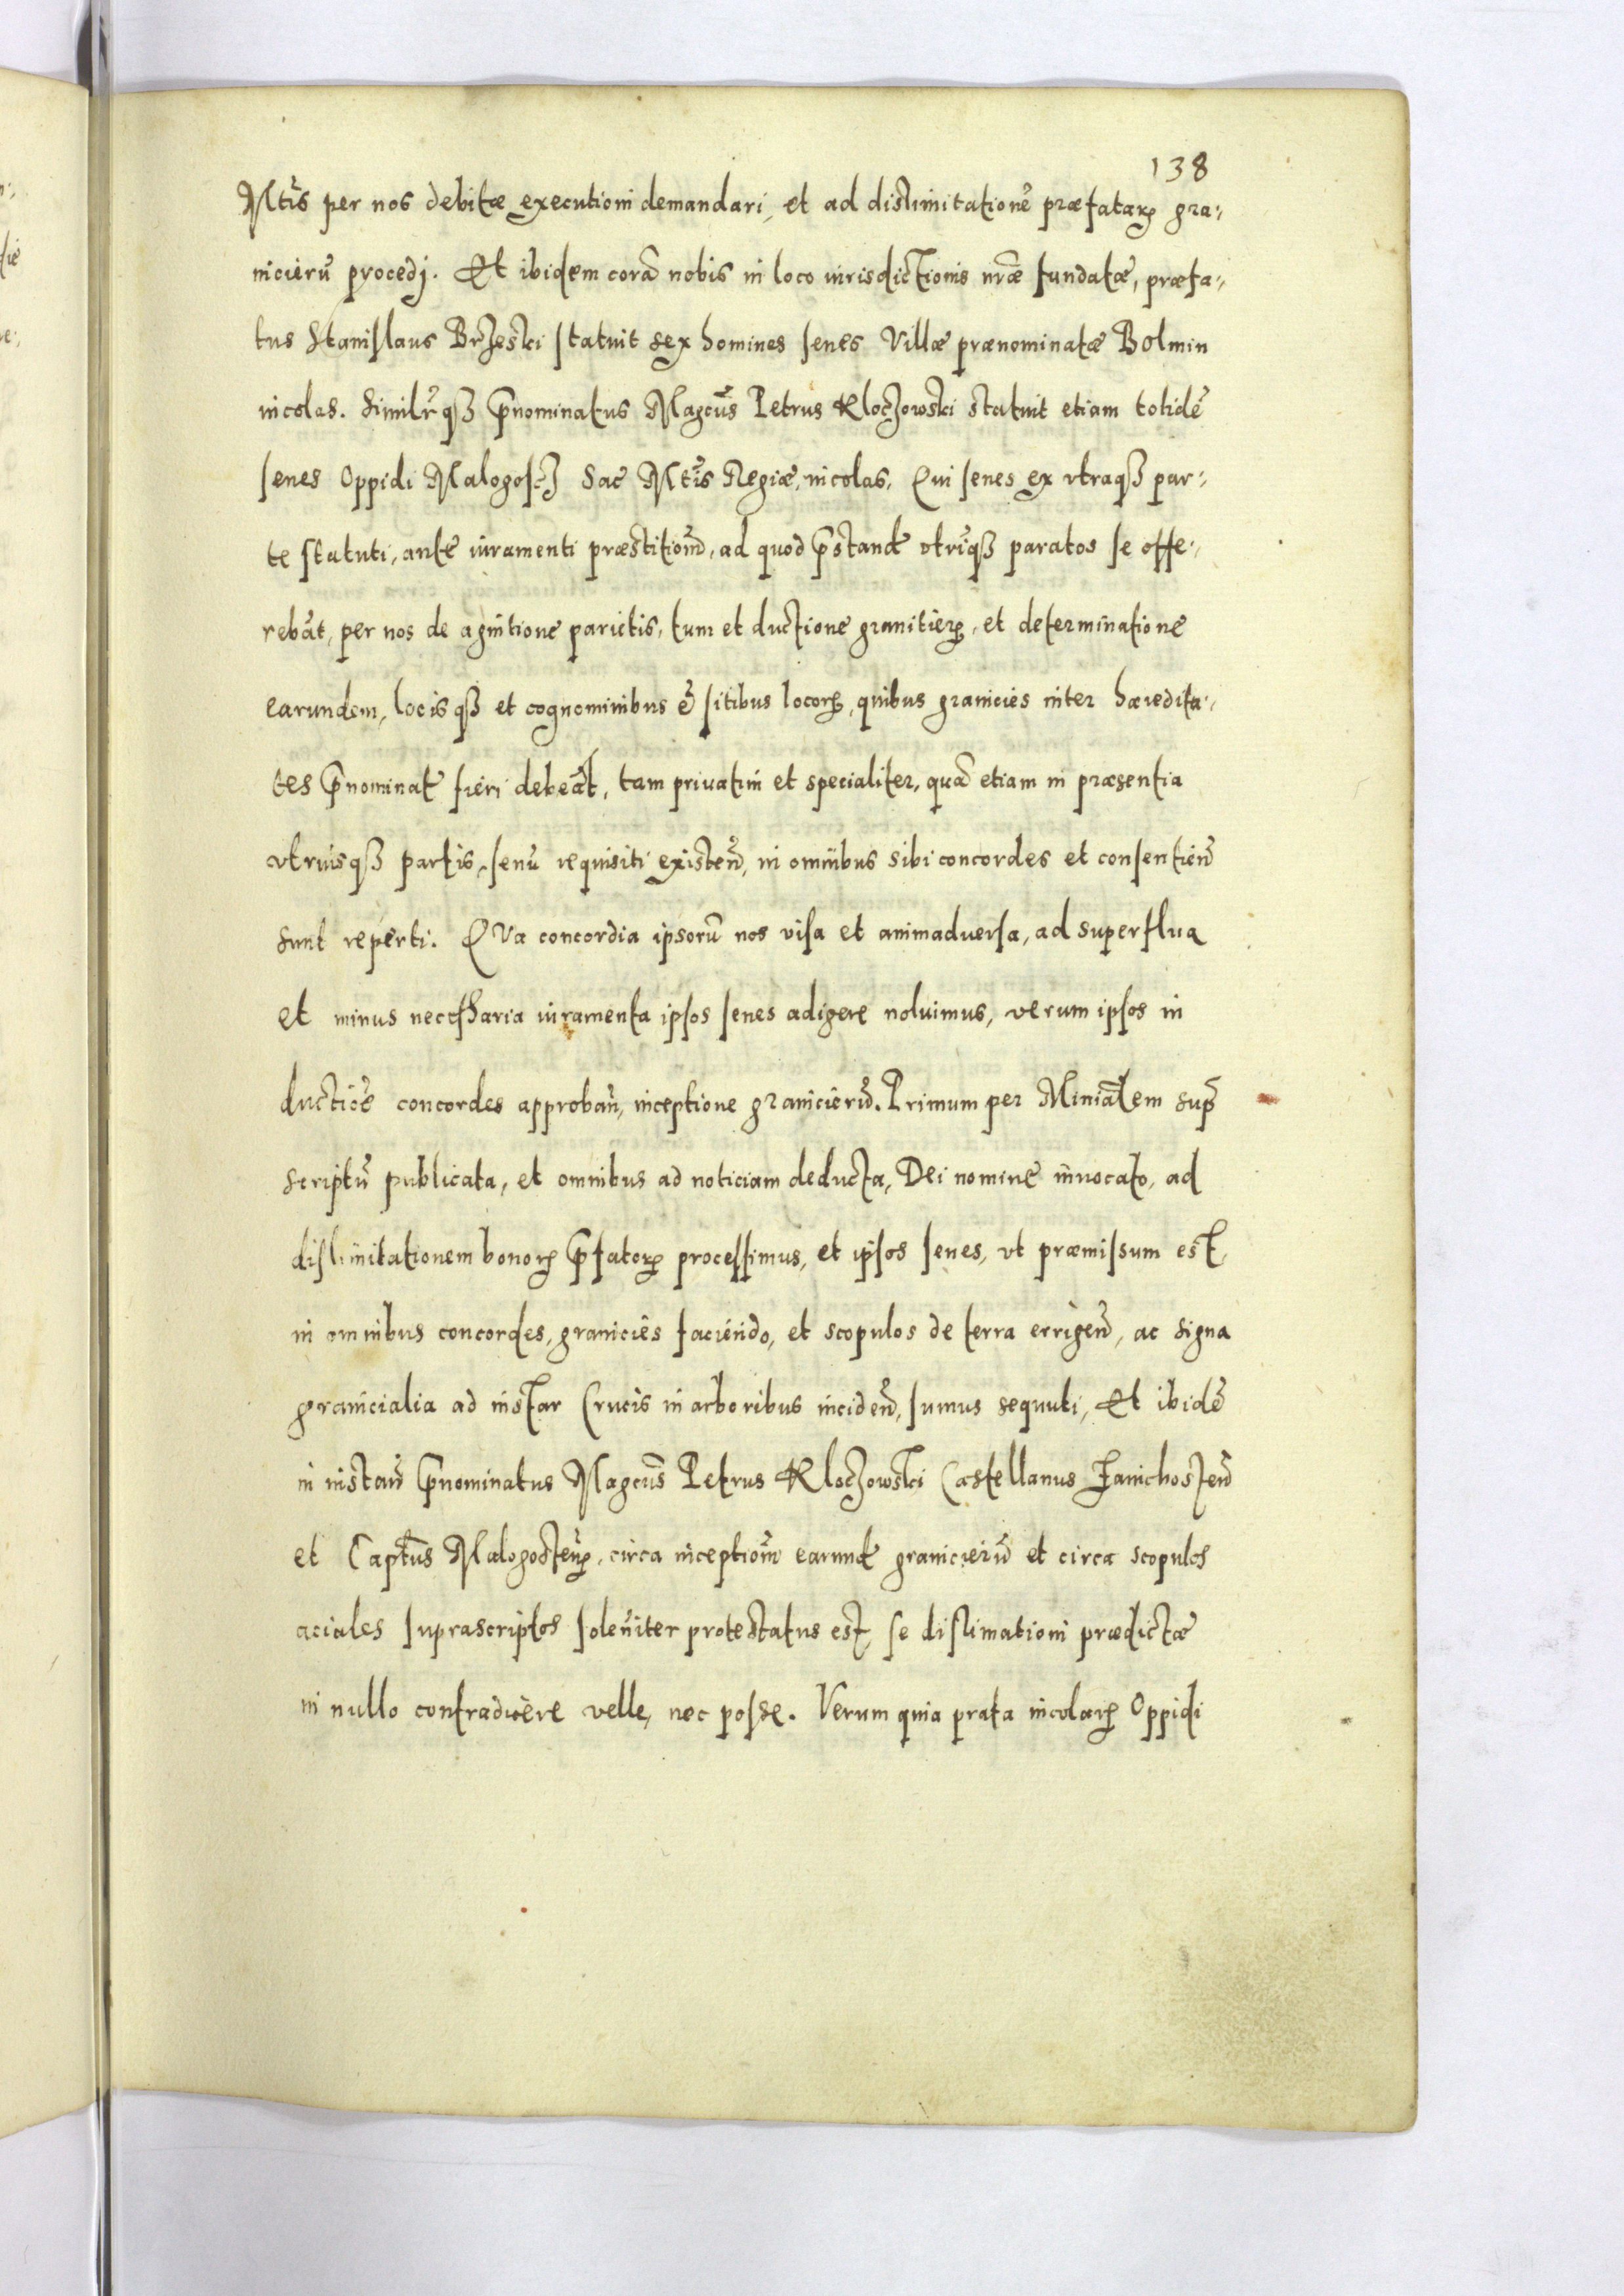 138
Mtis per nos debitæ executioni demandari, et ad dislimitationẽ præfatarꝝ gra-
nicierũ procedj. Et ibidem corã nobis in loco iurisdictionis nr̃æ fundatæ, præfa-
tus Stanislaus Brzeski statuit sex homines senes Villæ prænominatæ Bolmin
incolas. Similr̃qꝫ p̃nominatus Magcũs Petrus Kloczowski statuit etiam totidẽ
senes Oppidi Malogoscz Sac Mtis Regiæ, incolas, Qui senes ex vtraqꝫ par-
te statuti, ante iuramenti præstitionẽ, ad quod p̃stand vtriqꝫ paratos se offe-
rebãt, per nos de agnitione parietis, tum et ductione granitierꝝ, et determinatione
earundem, locisqꝫ et cognominibus ẽ sitibus locorꝝ, quibus granicies inter hæredita-
tes p̃nominat fieri debeãt, tam priuatim et specialiter, quã etiam in præsentia
vtriusqꝫ partis, senũ requisiti existeñ, in omnibus sibi concordes et consentieñ
sunt reperti. QVa concordia ipsorũ nos visa et animaduersa, ad superflua
et minus necessaria iuramenta ipsos senes adigere noluimus, verum ipsos in
ductiõe concordes approbañ, inceptione granicierũ. Primum per Miniãlem sup̃
scriptũ publicata, et omnibus ad noticiam deducta, Dei nomine inuocato, ad
dislimitationem bonorꝝ p̃fatorꝝ processimus, et ipsos senes, vt præmissum est,
in omnibus concordes, granicies faciendo, et scopulos de terra errigeñ, ac signa
granicialia ad instar Crucis in arboribus incideñ, sumus sequuti, Et ibidẽ
in instañ p̃nominatus Magcũs Petrus Kloczowski Castellanus Zanichosteñ
et Captũs Malogosteñ, circa inceptionẽ earund granicierũ et circa scopulos
aciales suprascriptos soleñiter protestatus est, se dislimationi prædictæ
in nullo contradicere velle, nec posse. Verum quia prata incolarꝝ Oppidi